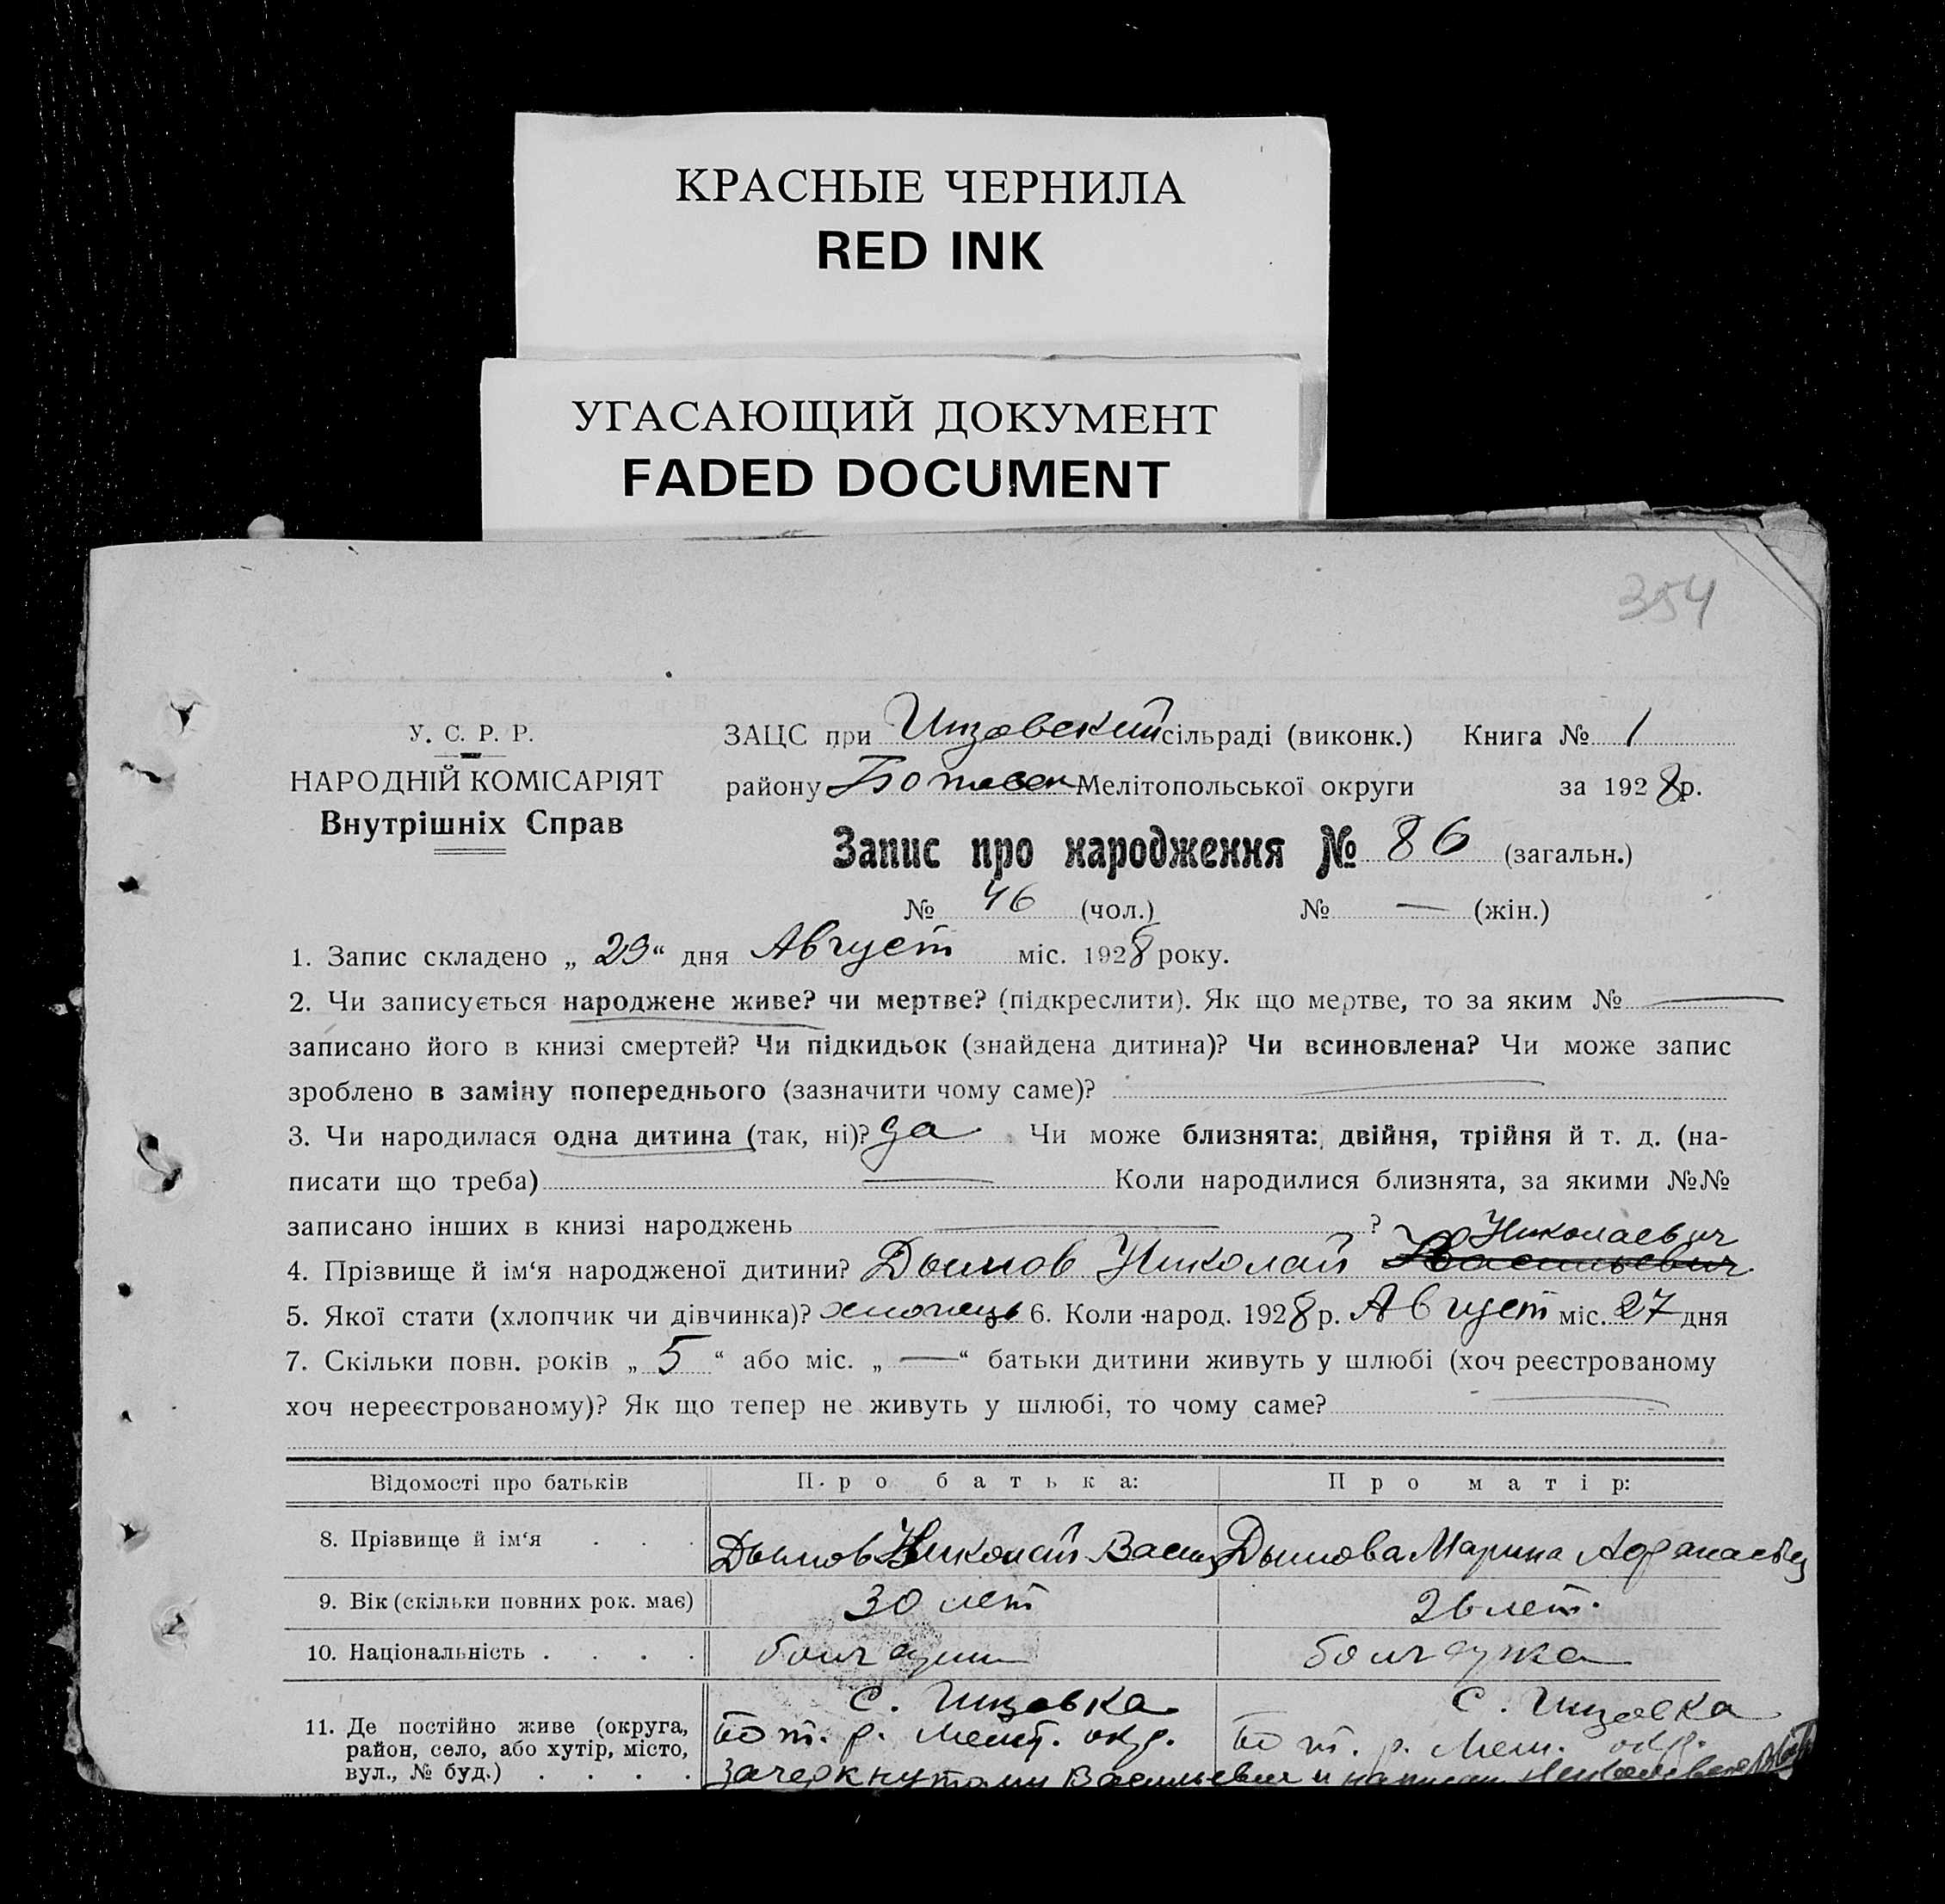 КРАСНЫЕ ЧЕРНИЛА
RED INK
УГАСАЮЩИЙ ДОКУМЕНТ
FADED DOCUMENT
354
У. С. Р. Р.
НАРОДНІЙ КОМІСАРІЯТ
Внутрішніх Справ
ЗАЦС при Инзовский сільраді (виконк.) Книга № 1
району Ботиевск Мелітопольської округи за 1928 р.
Запис про народження № 86 (загальн.)
№ 46 (чол.) № — (жін.)
1. Запис складено „ 29 “ дня Август міс. 1928 року.
2. Чи записується народжене живе? чи мертве? (підкреслити). Як що мертве, то за яким № —
записано його в книзі смертей? Чи підкидьок (знайдена дитина)? Чи всиновлена? Чи може запис
зроблено в заміну попереднього (зазначити чому саме)? —
3. Чи народилася одна дитина (так, ні)? да Чи може близнята: двійня, трійня й т. д. (на-
писати що треба) — Коли народилися близнята, за якими №№
записано інших в книзі народжень — ?
Николаевич
4. Прізвище й ім‘я народженої дитини? Дымов Николай Васильевич
5. Якої стати (хлопчик чи дівчинка)? хлопець 6. Коли народ. 1928 р. Август міс. 27 дня
7. Скільки повн. років „ 5 “ або міс. „ — “ батьки дитини живуть у шлюбі (хоч реєстрованому
хоч нереєстрованому)? Як що тепер не живуть у шлюбі, то чому саме? —
Відомості про батьків Про батька: Про матір:
8. Прізвище й ім‘я . . . Дымов Николай Васил Дымова Марина
9. Вік (скільки повних рок. має) 30 лет 26 лет.
10. Національність . . . . болгарин болгарка
11. Де постійно живе (округа,
район, село, або хутір, місто,
вул., № буд.) . . . .
с. Инзовка
Бот. р. Мелит. окр.
с. Инзовка
Бот. р. Мел. окр.
зачеркнутому Васильевич и написан